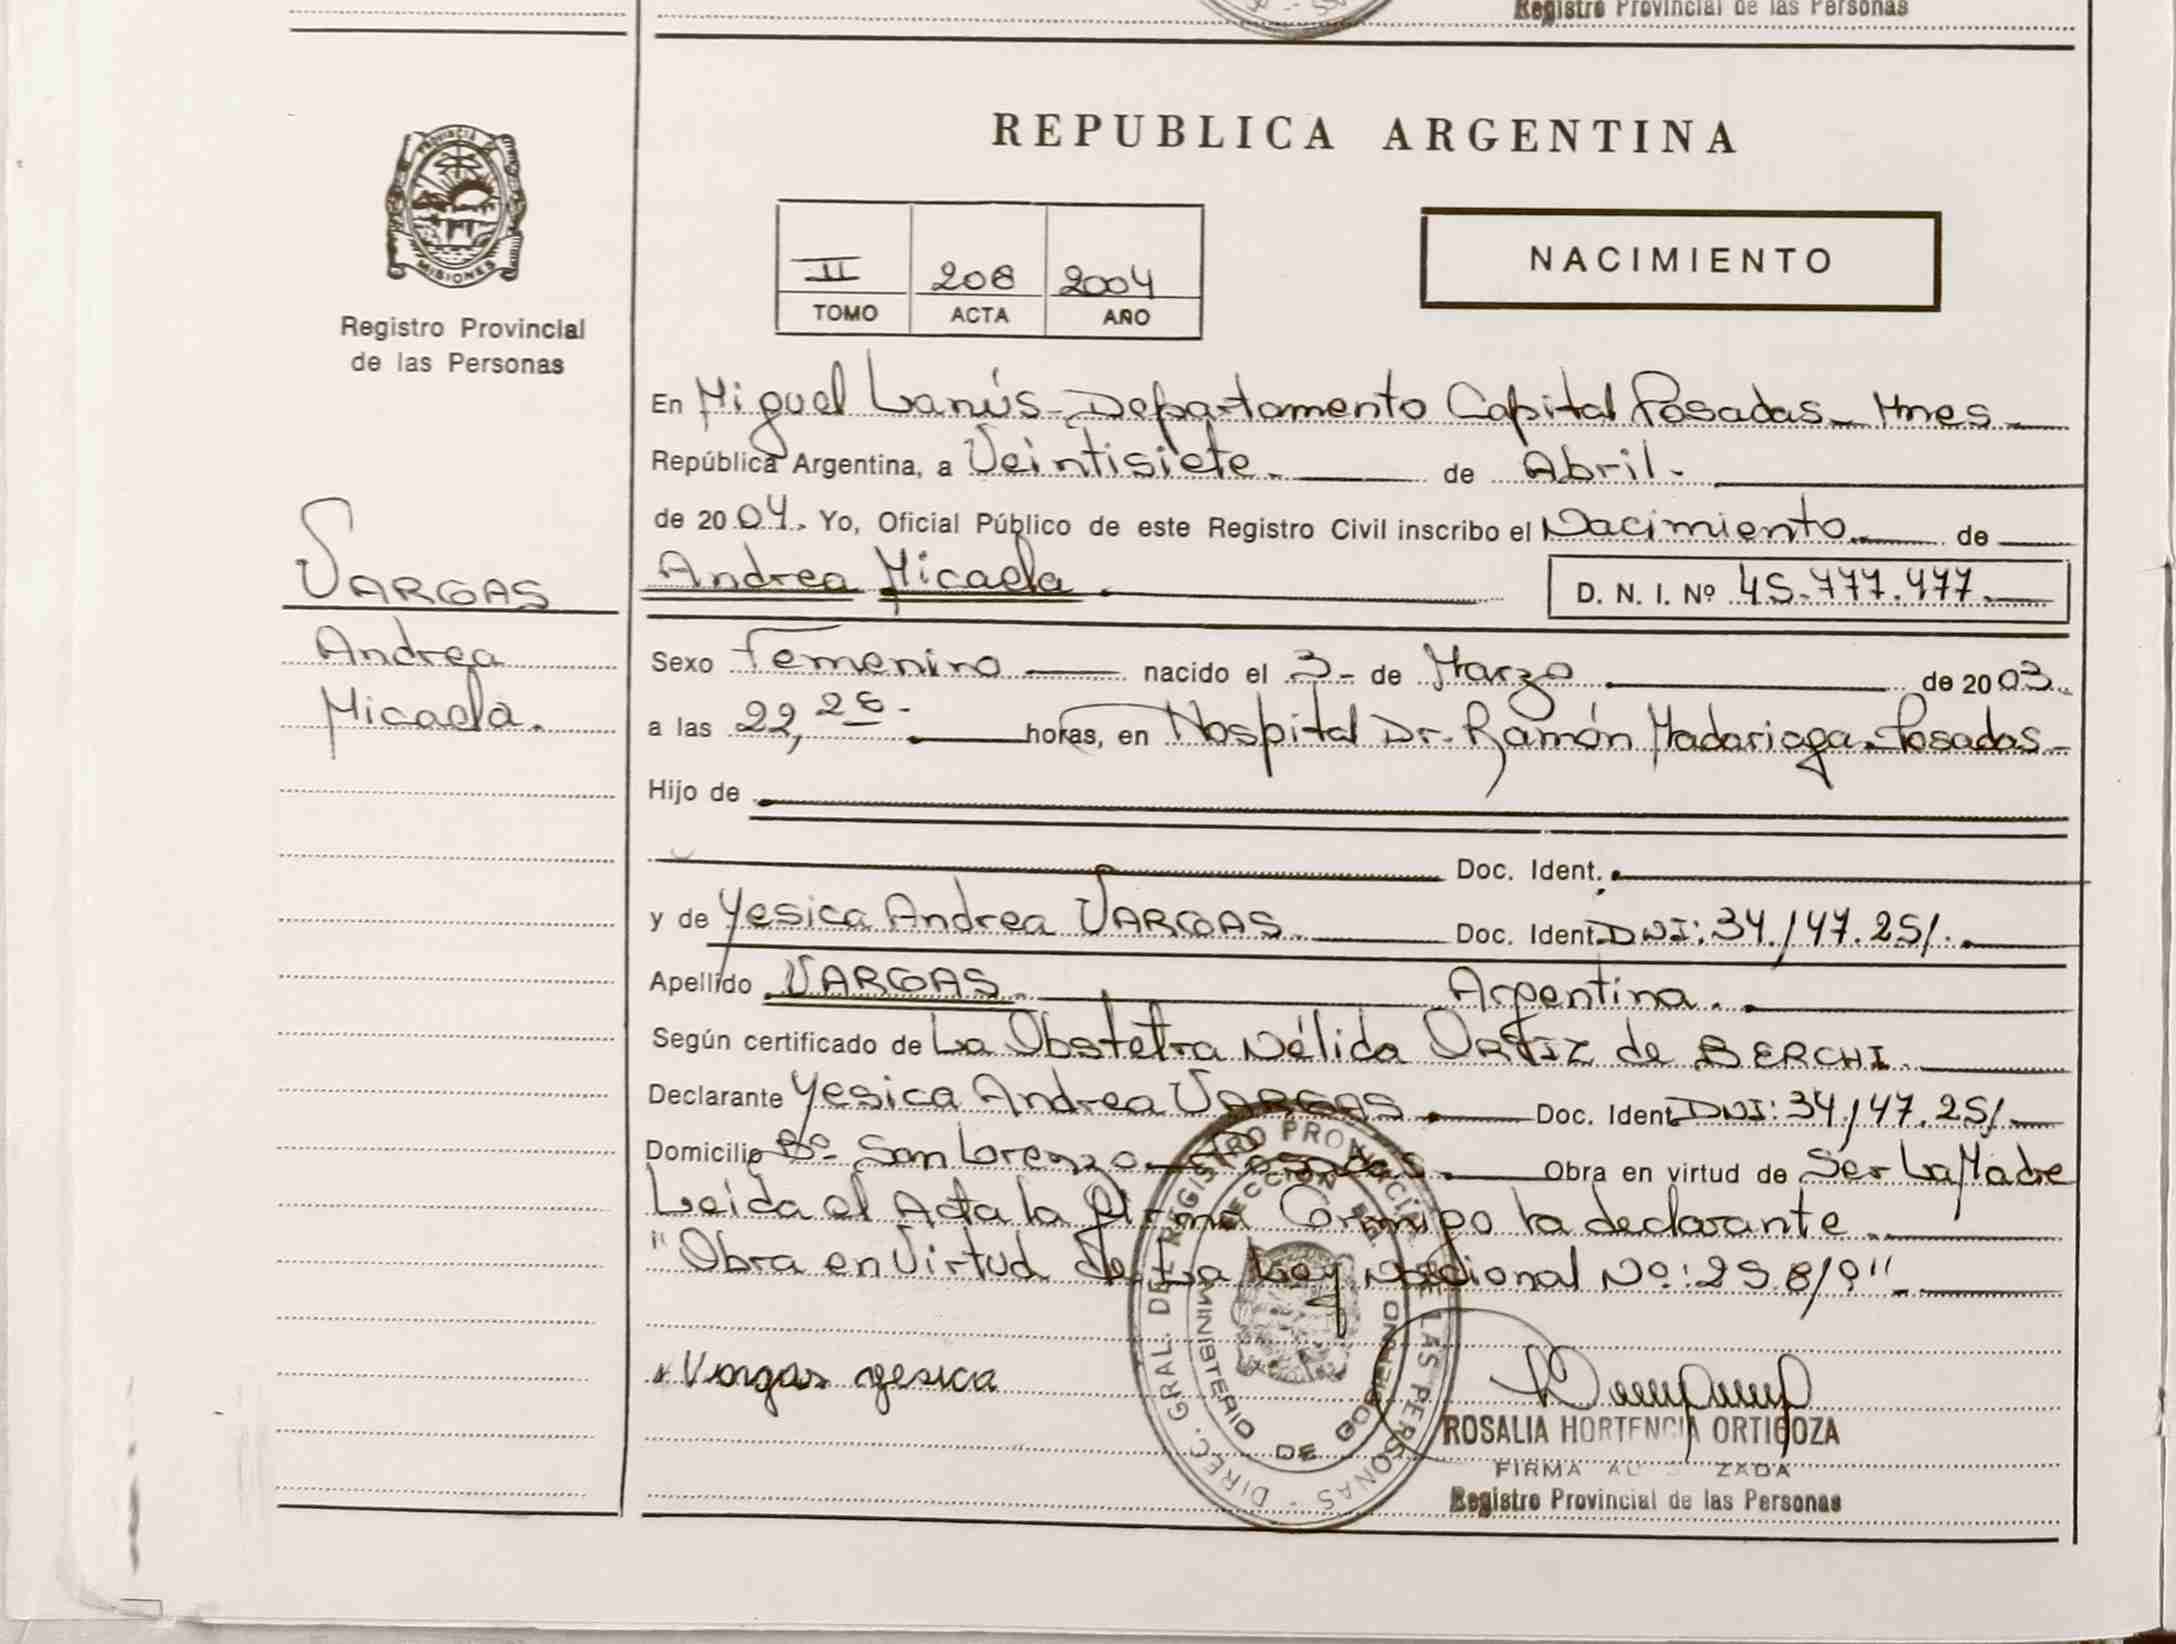 Registro Provincial de las Personas
PROVINCIA DE
MISIONES
Registro Provincial
de las Personas
VARGAS
Andrea
Micaela.
REPUBLICA ARGENTINA
II 208 2004
TOMO ACTA AÑO
NACIMIENTO
En Miguel Lanús - Departamento Capital Posadas - Mnes
República Argentina, a Veintisiete. de Abril.
de 2004. Yo, Oficial Público de este Registro Civil inscribo el Nacimiento de
Andrea Micaela
D. N. I. Nº 45.777.977.
Sexo Femenino nacido el 3 - de Marzo de 2003.
a las 22, horas, en Hospital Dr. Ramón Madariaga. Posadas -
Hijo de
Doc. Ident.
y de Yesica Andrea VARGAS. Doc. Ident. DNI: 34.147.251.
Apellido VARGAS. Argentina.
Según certificado de La Obstetra Nélida ORTIZ de BERCHI.
Declarante Yesica Andrea VARGAS. Doc. Ident. DNI: 34.147.251
Domicilio Bº San Lorenzo - Posadas. Obra en virtud de Ser La Madre
Leida el Acta la firma Conmigo la declarante.
"Obra en Virtud de La Ley Nacional Nº: 25.819".
Vargas yesica
DIREC. GRAL. DEL REGISTRO PROVINCIAL DE LAS PERSONAS
MINISTERIO DE GOBIERNO
ROSALIA HORTENCIA ORTIGOZA
FIRMA AUTORIZADA
Registro Provincial de las Personas